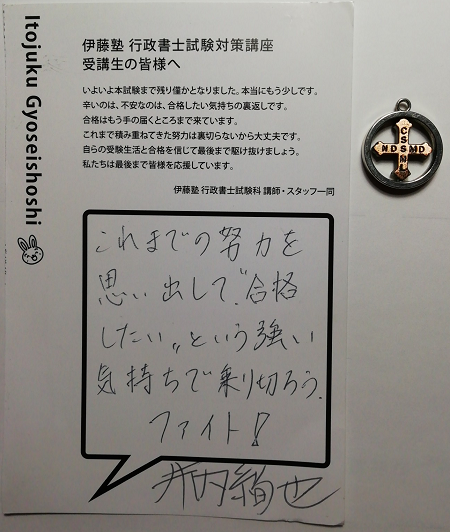 Itojuku Gyoseishoshi
伊藤塾 行政書士試験対策講座
受講生の皆様へ
いよいよ本試験まで残り僅かとなりました。本当にもう少しです。
辛いのは、不安なのは、合格したい気持ちの裏返しです。
合格はもう手の届くところまで来ています。
これまで積み重ねてきた努力は裏切らないから大丈夫です。
自らの受験生活と合格を信じて最後まで駆け抜けましょう。
私たちは最後まで皆様を応援しています。
伊藤塾 行政書士試験科 講師・スタッフ一同
これまでの努力を
思い出して、"合格
したい〟という強い
気持ちで乗り切ろう.
ファイト!
井内絢也
C
S
N D S M D
M
L